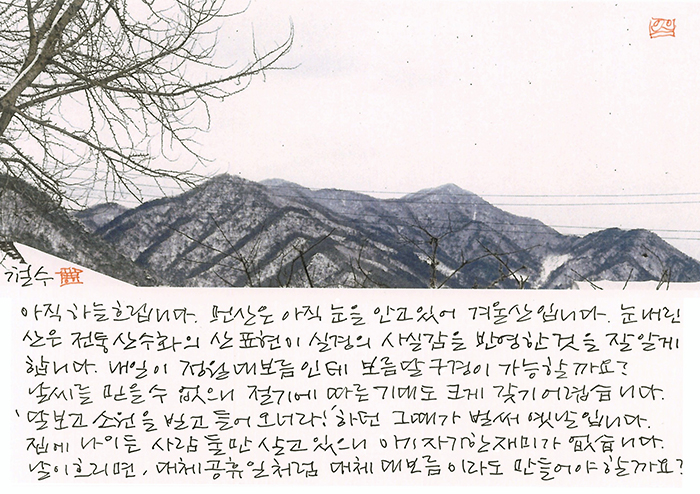 철수
아직 하늘 흐립니다. 먼산은 아직 눈을 안고있어 겨울산입니다. 눈내린
산은 전통산수화의 산 표현이 실경의 사실감을 반영한 것을 잘 알게
합니다. 내일이 정월 대보름인데 보름달 구경이 가능할까요?
날씨를 만들 수 없으니 절기에 따른 기대도 크게 갖기 어렵습니다.
'달보고 소원을 빌고 들어오너라!' 하던 그때가 벌써 옛날입니다.
집에 나이든 사람들만 살고있으니 아기자기한 재미가 없습니다.
날이 흐리면, 대체공휴일처럼 대체 대보름이라도 만들어야 할까요?